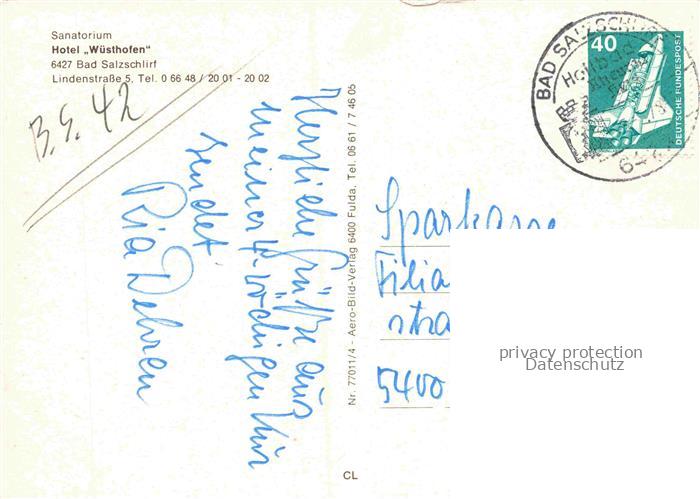 Sanatorium
Hotel „Wüsthofen"
6427 Bad Salzschlirf
Lindenstraße 5, Tel. 0 66 48 / 20 01 - 20 02
B.S. 42
Herzliche Grüße aus
meiner 4-wöchigen Kur
sendet
Ria Dehren
Nr. 77011/4 - Aero-Bild-Verlag 6400 Fulda, Tel. 06 61 / 7 46 05
CL
BAD SALZSCHLI
Heilbad
642
40
DEUTSCHE BUNDESPOST
Sparkasse
Filia
stra
5400
privacy protection
Datenschutz